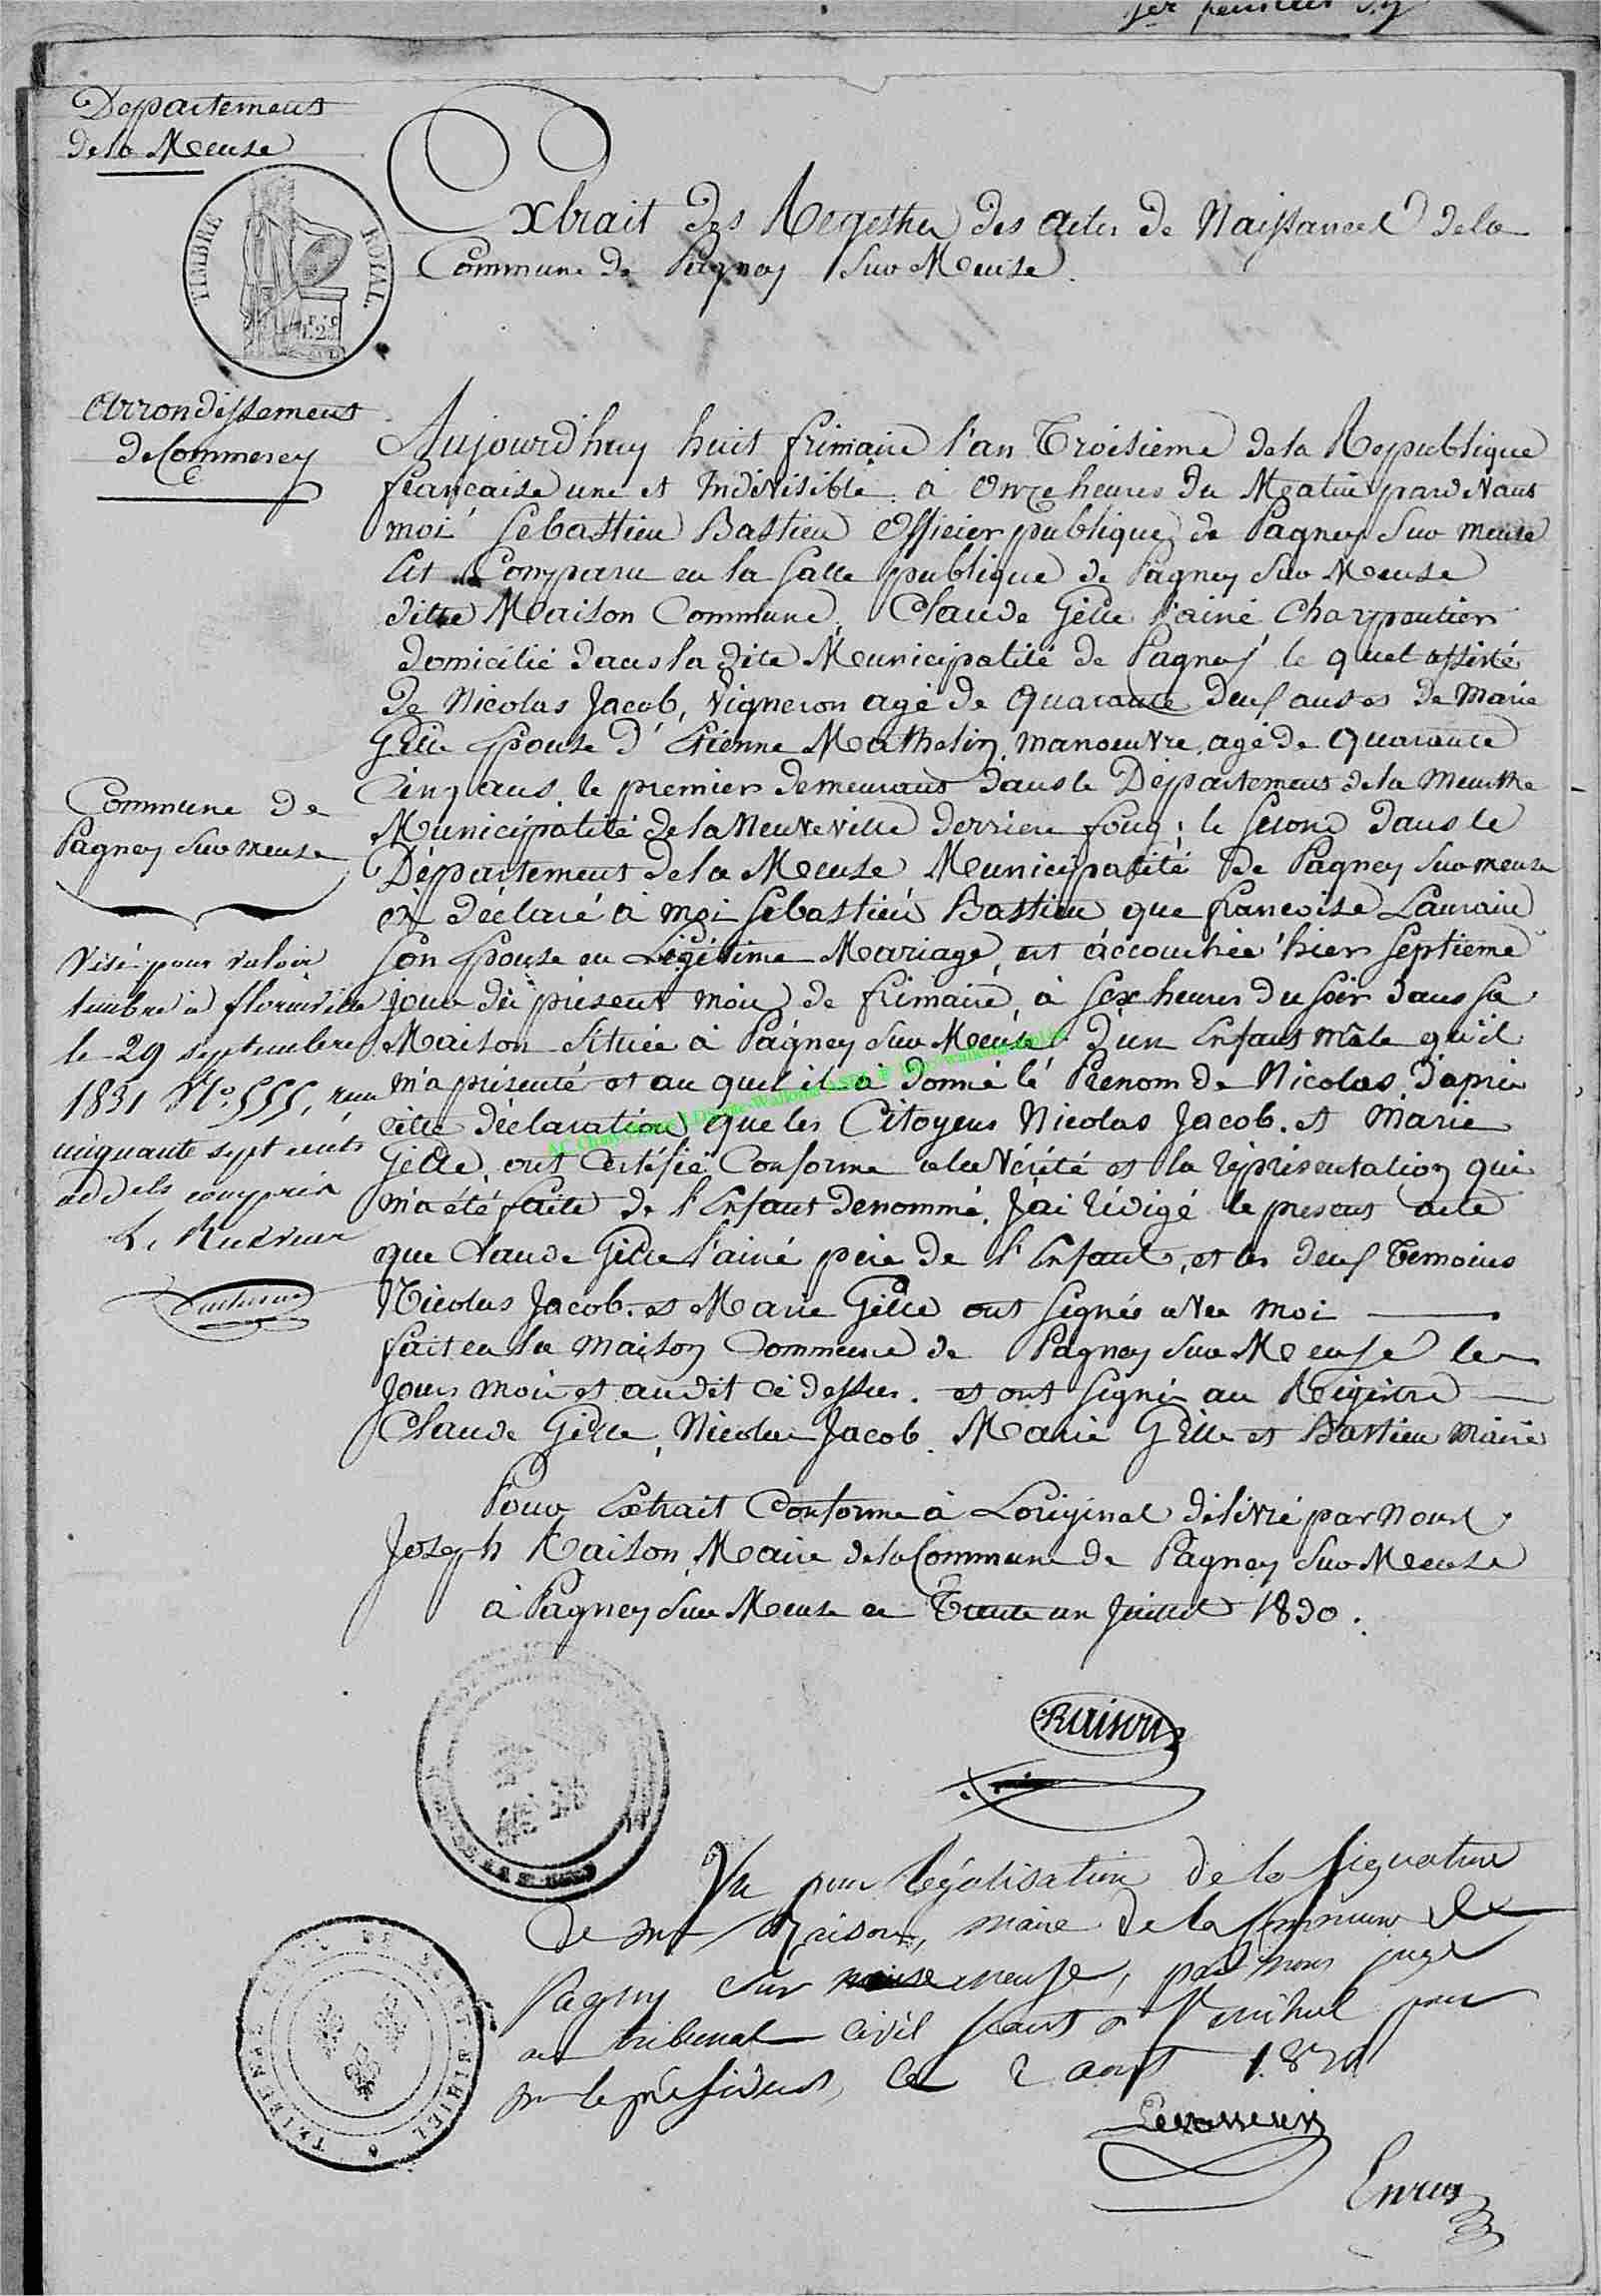 Departement
de la Meuse
TIMBRE ROYAL
Extrait des Regestre des actes de Naissances de la
Commune de Pagney Sur Meuse.
Arrondissement
de Commercy
Aujourd'huy huit frimaire l'an Troisieme de la Republique
française une et Indivisible. à Onze heures du Matin pardevant
moi Sebastien Bastien Officier publique de Pagney Sur meuse
Est Comparu en la Salle publique de Pagney Sur Meuse
ditte Maison Commune, Claude Gille l'ainé Charpentier
domicilié dans la dite Municipalité de Pagney le quel assisté
de Nicolas Jacob, Vigneron agé de Quarante deux ans et de Marie
Gille Epouse d'Etienne Mathelin, manoeuvre, agé de Quarante
Cinq ans, le premier demeurant dans le Département de la Meurthe
Municipalité de la Neuveville derriere foug; le second dans le
Département de la Meuse Municipalité de Pagney Sur meuse
à déclaré à moi Sebastien Bastien que francoise Laurain
Son Epouse en Légitime Mariage, est accouchée hier Septieme
Jour du present mois de frimaire, à Sex heures du Soir dans Sa
Maison Située à Pagney Sur Meuse d'un Enfant mâle qu'il
m'a présenté et au quel il à donné le Prenom de Nicolas, d'apres
cette déclaration que les Citoyens Nicolas Jacob. et Marie
Gille, ont Certifié Conforme a la Vérité et la réprésentation qui
m'a été faite de l'Enfant denommé, J'ai rédigé le present acte
que Claude Gille l'ainé pere de l'Enfant, et les deux Temoins
Nicolas Jacob. et Marie Gille ont Signés avec moi
fait en la maison Commune de Pagney Sur Meuse les
Jours mois et an dit ci dessus. et ont Signé au Registre
Claude Gille, Nicolas Jacob. Marie Gille et Bastien Maire
Commune de
Pagney Sur meuse
Visé pour valoir
timbre à florenville
le 29 septembre
1831 No. 555, reçu
cinquante sept cents
addels compris
Pour Extrait Conforme à L'original délivré par Nous
Joseph Raison, Maire de la Commune de Pagney Sur Meuse
à Pagney Sur Meuse ce Trente un Juillet 1830.
Raison
Vu pour légalisation de la signature
de mr Raison, maire de la Commune de
Pagny sur meuse, par nous juge
au tribunal civil séant à St mihiel pour
mr le président, le 2 aout 1830